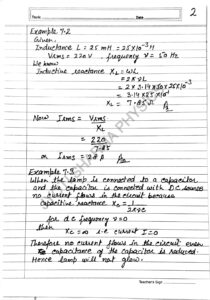 2
Date
Example 7.2
Given.
Inductance L = 25 mH = 25×10⁻³ H
Vrms = 220V, frequency ν = 50 Hz
We know
Inductive reactance XL = ωL
= 2πνL
= 2×3.14×50×25×10⁻³
= 3.14×25×10⁻¹
XL = 7.85Ω Ans
Now Irms = Vrms
XL
= 220
7.85
or Irms = 28 A Ans
Example 7.3
When the lamp is connected to a capacitor
and the capacitor is connected with DC source
no current flows in the circuit because
capacitive reactance Xc = 1
2πνc
for dc frequency ν=0
then
Xc = ∞ i.e current I=0
Therefore no current flows in the circuit even
capacitance of the capacitor is reduced.
Hence lamp will not glow.
Teacher's Sign